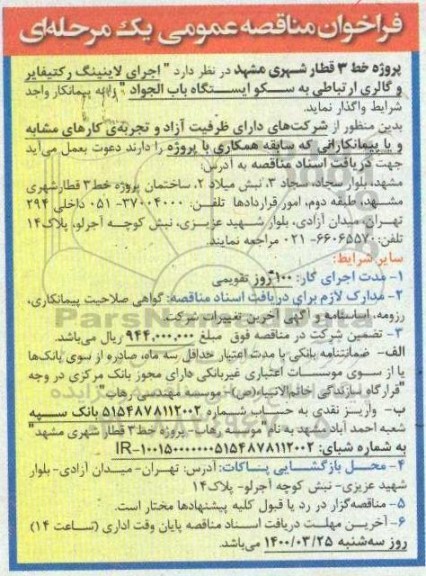 فراخوان مناقصه عمومی یک مرحله‌ای
پروژه خط ۳ قطار شهری مشهد در نظر دارد "اجرای لاینینگ رکتیفایر
و گالری ارتباطی به سکو ایستگاه باب الجواد" را به پیمانکار واجد
شرایط واگذار نماید.
بدین منظور از شرکت‌های دارای ظرفیت آزاد و تجربه‌ی کارهای مشابه
و یا پیمانکارانی که سابقه همکاری با پروژه را دارند دعوت بعمل می‌آید
جهت دریافت اسناد مناقصه به آدرس:
مشهد، بلوار سجاد، سجاد ۳، نبش میلاد ۲، ساختمان پروژه خط ۳ قطارشهری
مشهد، طبقه دوم، امور قراردادها تلفن: ۳۷۰۰۴۰۰۰-۰۵۱ داخلی ۲۹۴
تهران- میدان آزادی، بلوار شهید عزیزی، نبش کوچه آجرلو، پلاک۱۴
تلفن: ۶۶۰۶۵۵۷۰-۰۲۱ مراجعه نمایند.
سایر شرایط:
۱- مدت اجرای کار: ۱۰۰ روز تقویمی
۲- مدارک لازم برای دریافت اسناد مناقصه: گواهی صلاحیت پیمانکاری،
رزومه، اساسنامه و آگهی آخرین تغییرات شرکت
۳- تضمین شرکت در مناقصه فوق مبلغ ۹۴۴,۰۰۰,۰۰۰ ریال می‌باشد.
الف- ضمانتنامه بانکی با مدت اعتبار حداقل سه ماه، صادره از سوی بانک‌ها
یا از سوی موسسات اعتباری غیربانکی دارای مجوز بانک مرکزی در وجه
"قرارگاه سازندگی خاتم‌الانبیاء(ص)- موسسه مهندسی رهاب"
ب- واریز نقدی به حساب شماره ۵۱۵۴۸۷۸۱۱۲۰۰۲ بانک سپه
شعبه احمد آباد مشهد به نام "موسسه رهاب- پروژه خط ۳ قطار شهری مشهد"
به شماره شبای: IR-۱۰۰۱۵۰۰۰۰۰۰۵۱۵۴۸۷۸۱۱۲۰۰۲
۴- محل بازگشایی پاکات: آدرس: تهران- میدان آزادی- بلوار
شهید عزیزی- نبش کوچه آجرلو- پلاک۱۴
۵- مناقصه‌گزار در رد یا قبول کلیه پیشنهادها مختار است.
۶- آخرین مهلت دریافت اسناد مناقصه پایان وقت اداری (ساعت ۱۴)
روز سه‌شنبه ۱۴۰۰/۰۳/۲۵ می‌باشد.